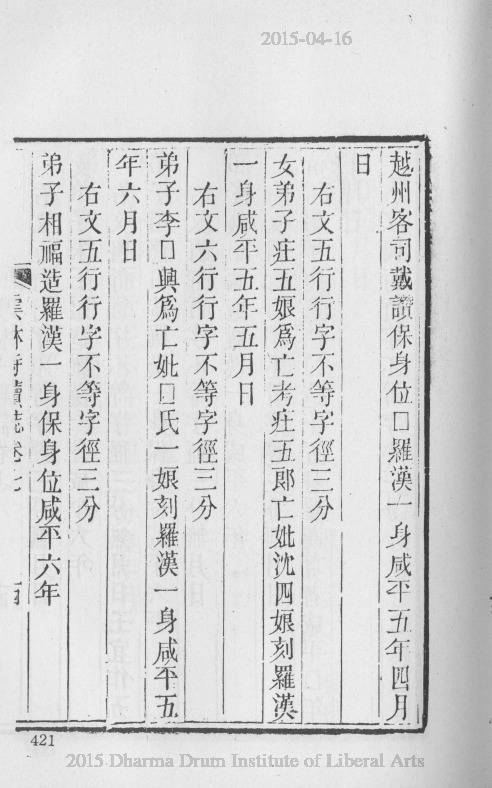 2015-04-16
越州客司戴讃保身位口羅漢一身咸平五年四月
日
右文五行行字不等字徑三分
女弟子疰五娘爲亡考疰五郞亡妣沈四娘刻羅漢
一身咸平五年五月日
右文六行行字不等字徑三分
弟子李口興爲亡妣口氏一娘刻羅漢一身咸平五
年六月日
右文五行行字不等字徑三分
弟子相福造羅漢一身保身位咸平六年
林寺續誌卷七
421
2015 Dharma Drum Institute of Liberal Arts